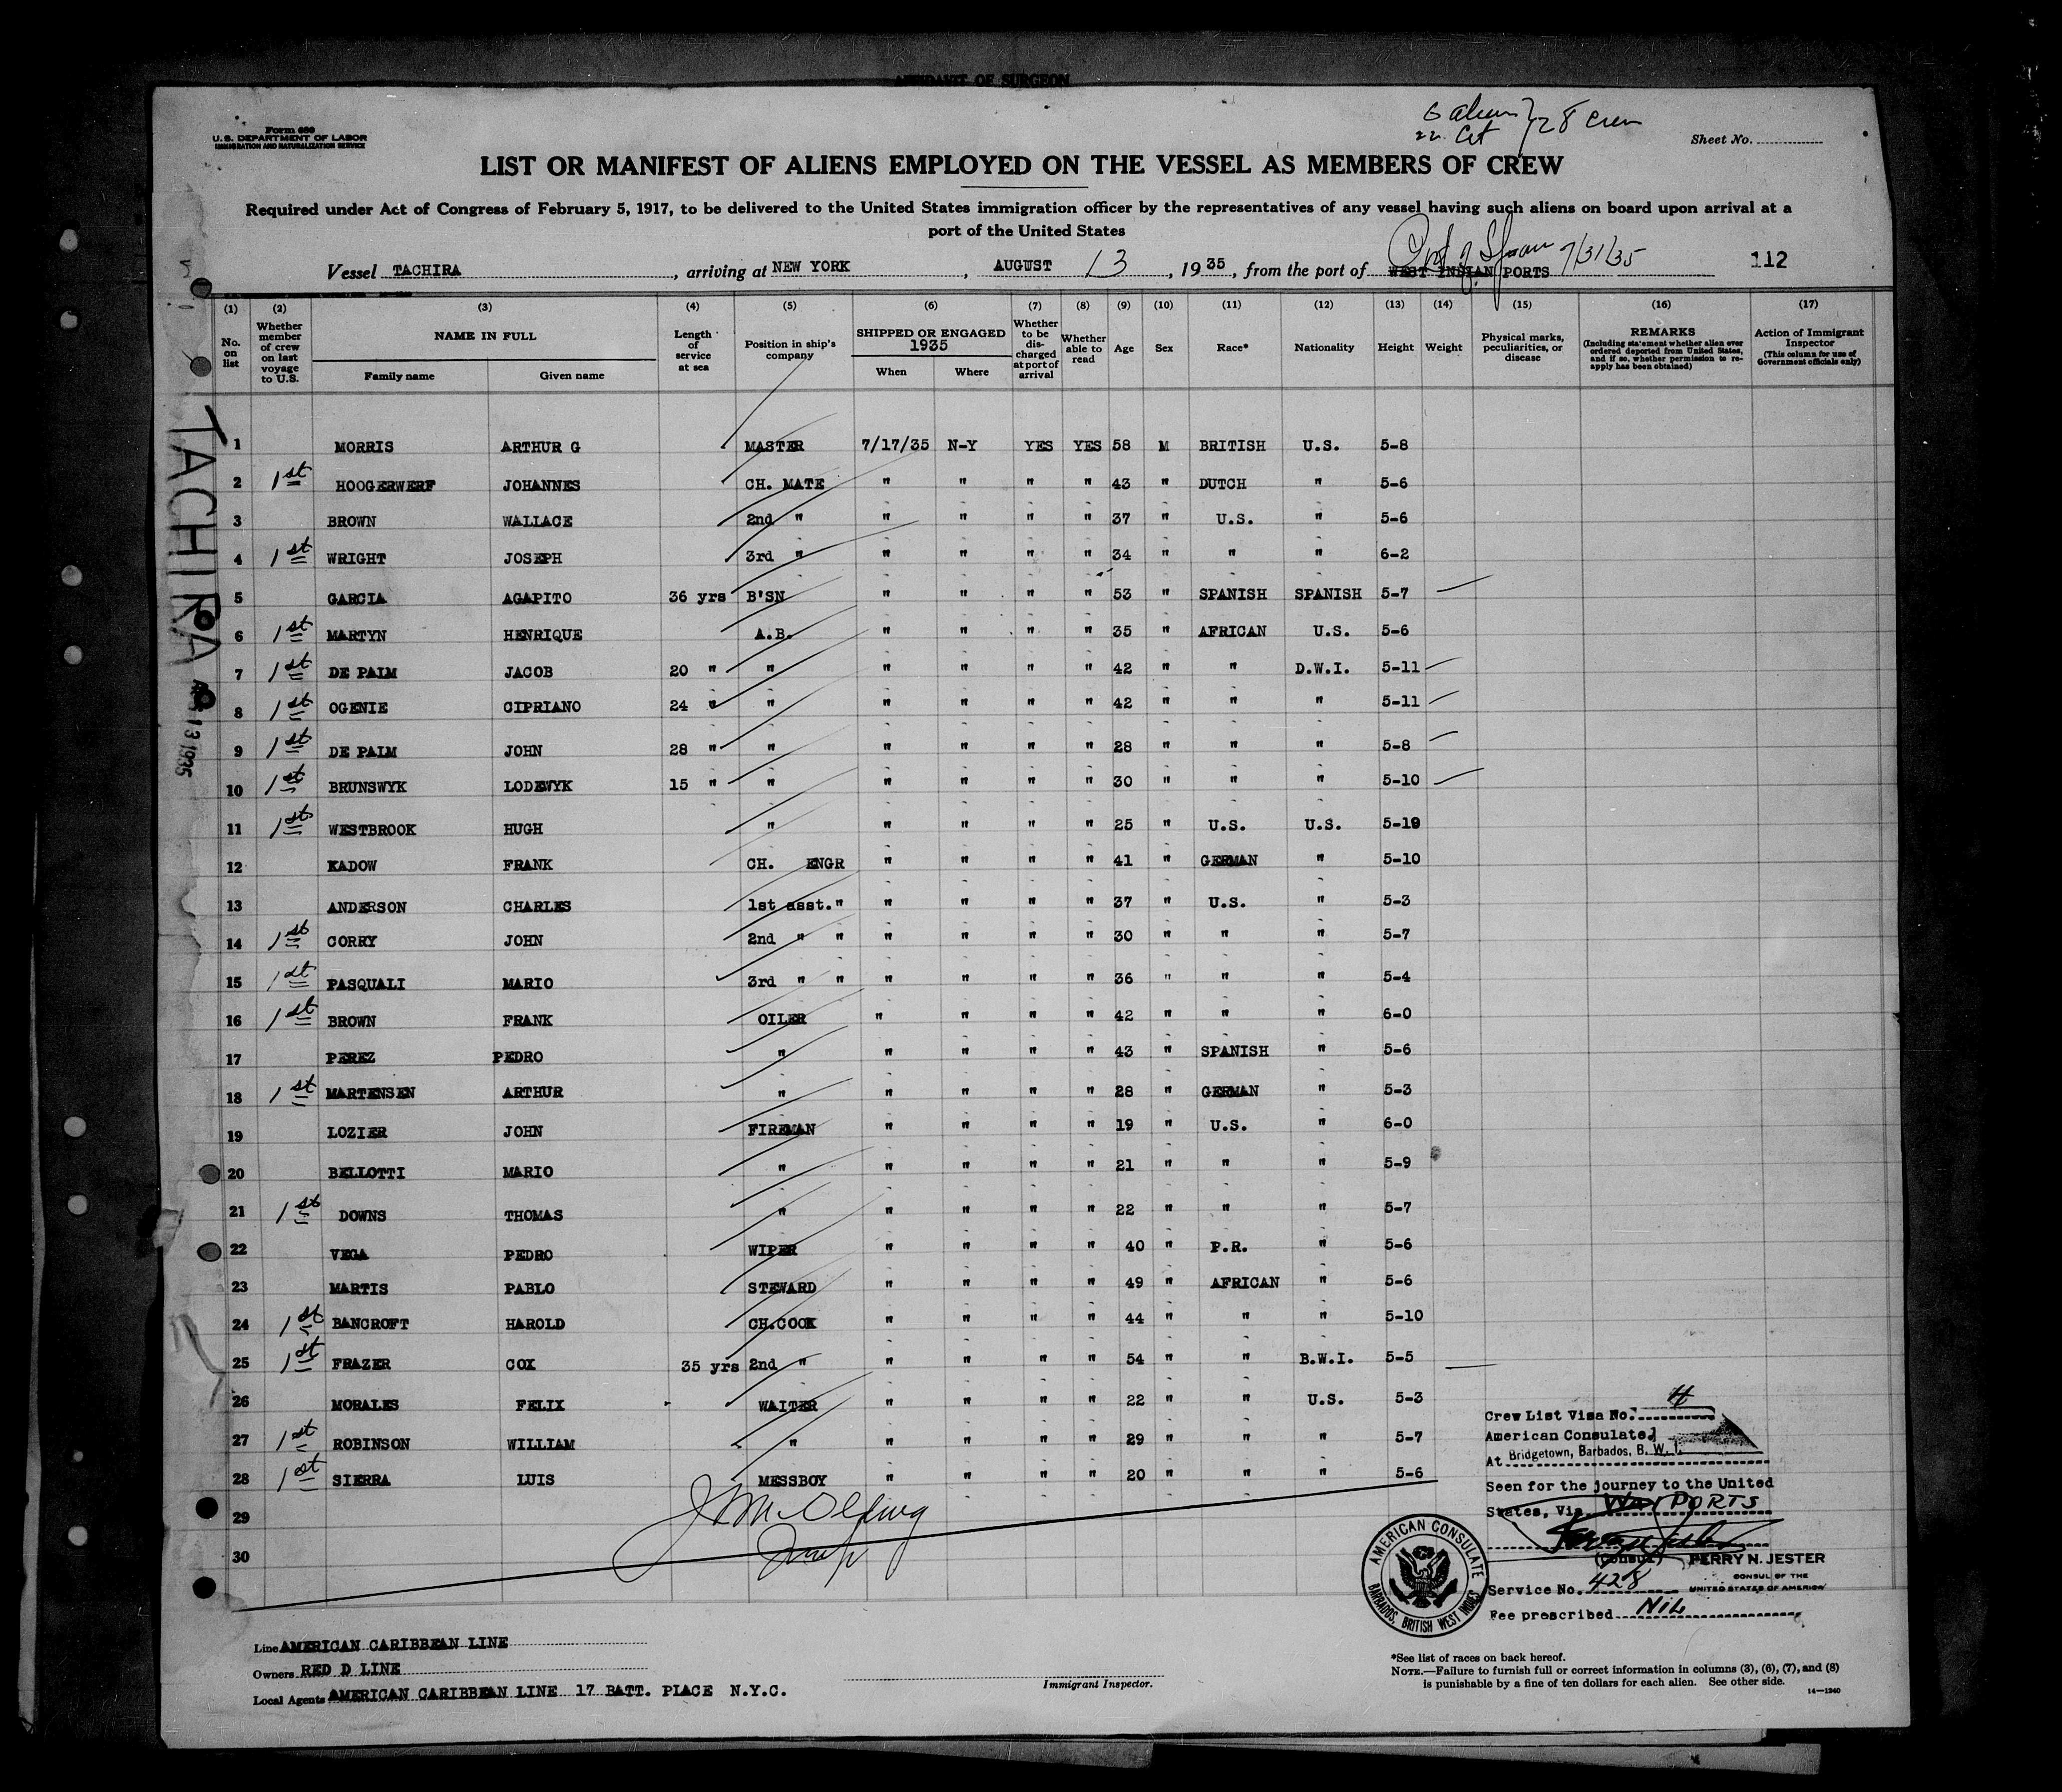 AFFIDAVIT OF SURGEON
6 aliens
22 Cit 28 Crew
Form 689
U.S. DEPARTMENT OF LABOR
IMMIGRATION AND NATURALIZATION SERVICE
Sheet No.
LIST OR MANIFEST OF ALIENS EMPLOYED ON THE VESSEL AS MEMBERS OF CREW
Required under Act of Congress of February 5, 1917, to be delivered to the United States immigration officer by the representatives of any vessel having such aliens on board upon arrival at a
port of the United States
Port of Spain 7/31/35
Vessel TACHIRA, arriving at NEW YORK, AUGUST 13, 1935, from the port of WEST INDIAN PORTS 112
(1) (2) (3) (4) (5) (6) (7) (8) (9) (10) (11) (12) (13) (14) (15) (16) (17)
No. on list
Whether member of crew on last voyage to U.S.
NAME IN FULL
Family name Given name
Length of service at sea
Position in ship's company
SHIPPED OR ENGAGED
1935
When Where
Whether to be discharged at port of arrival
Whether able to read
Age
Sex
Race*
Nationality
Height
Weight
Physical marks, peculiarities, or disease
REMARKS
(Including statement whether alien ever ordered deported from United States, and if so, whether permission to reapply has been obtained)
Action of Immigrant Inspector
(This column for use of Government officials only)
TACHIRA
13 1935
1 MORRIS ARTHUR G MASTER 7/17/35 N-Y YES YES 58 M BRITISH U.S. 5-8
2 1st HOOGERWERF JOHANNES CH. MATE " " " " 43 " DUTCH " 5-6
3 BROWN WALLACE 2nd " " " " " 37 " U.S. " 5-6
4 1st WRIGHT JOSEPH 3rd " " " " " 34 " " " 6-2
5 GARCIA AGAPITO 36 yrs B'SN " " " " 53 " SPANISH SPANISH 5-7
6 1st MARTYN HENRIQUE A.B. " " " " 35 " AFRICAN U.S. 5-6
7 1st DE PALM JACOB 20 " " " " " " 42 " " D.W.I. 5-11
8 1st OGENIE CIPRIANO 24 " " " " " " 42 " " " 5-11
9 1st DE PALM JOHN 28 " " " " " " 28 " " " 5-8
10 1st BRUNSWYK LODEWYK 15 " " " " " " 30 " " " 5-10
11 1st WESTBROOK HUGH " " " " " 25 " U.S. U.S. 5-10
12 KADOW FRANK CH. ENGR " " " " 41 " GERMAN " 5-10
13 ANDERSON CHARLES 1st asst. " " " " " 37 " U.S. " 5-3
14 1st CORRY JOHN 2nd " " " " " " 30 " " " 5-7
15 1st PASQUALI MARIO 3rd " " " " " " 36 " " " 5-4
16 1st BROWN FRANK OILER " " " " 42 " " " 6-0
17 PEREZ PEDRO " " " " " 43 " SPANISH " 5-6
18 1st MARTENSEN ARTHUR " " " " " 28 " GERMAN " 5-3
19 LOZIER JOHN FIREMAN " " " " 19 " U.S. " 6-0
20 BELLOTTI MARIO " " " " " 21 " " " 5-9
21 1st DOWNS THOMAS " " " " " 22 " " " 5-7
22 VEGA PEDRO WIPER " " " " 40 " P.R. " 5-6
23 MARTIS PABLO STEWARD " " " " 49 " AFRICAN " 5-6
24 1st BANCROFT HAROLD CH.COOK " " " " 44 " " " 5-10
25 1st FRAZER COX 35 yrs 2nd " " " " " 54 " " B.W.I. 5-5
26 MORALES FELIX WAITER " " " " 22 " " U.S. 5-3
27 1st ROBINSON WILLIAM " " " " " 29 " " " 5-7
28 1st SIERRA LUIS MESSBOY " " " " 20 " " " 5-6
29
30
Crew List Visa No. 4
American Consulate
At Bridgetown, Barbados, B. W. I.
Seen for the journey to the United
States, Via PORTS
(Consul) PERRY N. JESTER
CONSUL OF THE
UNITED STATES OF AMERICA
Service No. 428
Fee prescribed Nil
AMERICAN CONSULATE
BARBADOS, BRITISH WEST INDIES
Line AMERICAN CARIBBEAN LINE
Owners RED D LINE
Local Agents AMERICAN CARIBBEAN LINE 17 BATT. PLACE N.Y.C.
Immigrant Inspector.
*See list of races on back hereof.
NOTE.—Failure to furnish full or correct information in columns (3), (6), (7), and (8)
is punishable by a fine of ten dollars for each alien. See other side.
14—1240